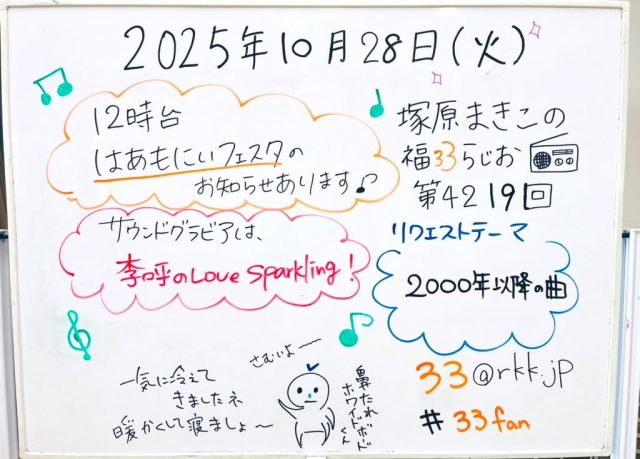 2025年10月28日(火)
12時台
はあもにいフェスタの
お知らせあります♪
サウンドグラビアは、
李呼のLove Sparkling!
塚原まきこの
福33らじお
第4219回
リクエストテーマ
2000年以降の曲
33@rkk.jp
#33fan
さむいよ〜〜
一気に冷えて
きましたネ
暖かくして寝ましょ〜
鼻たれ
ホワイトボード
くん